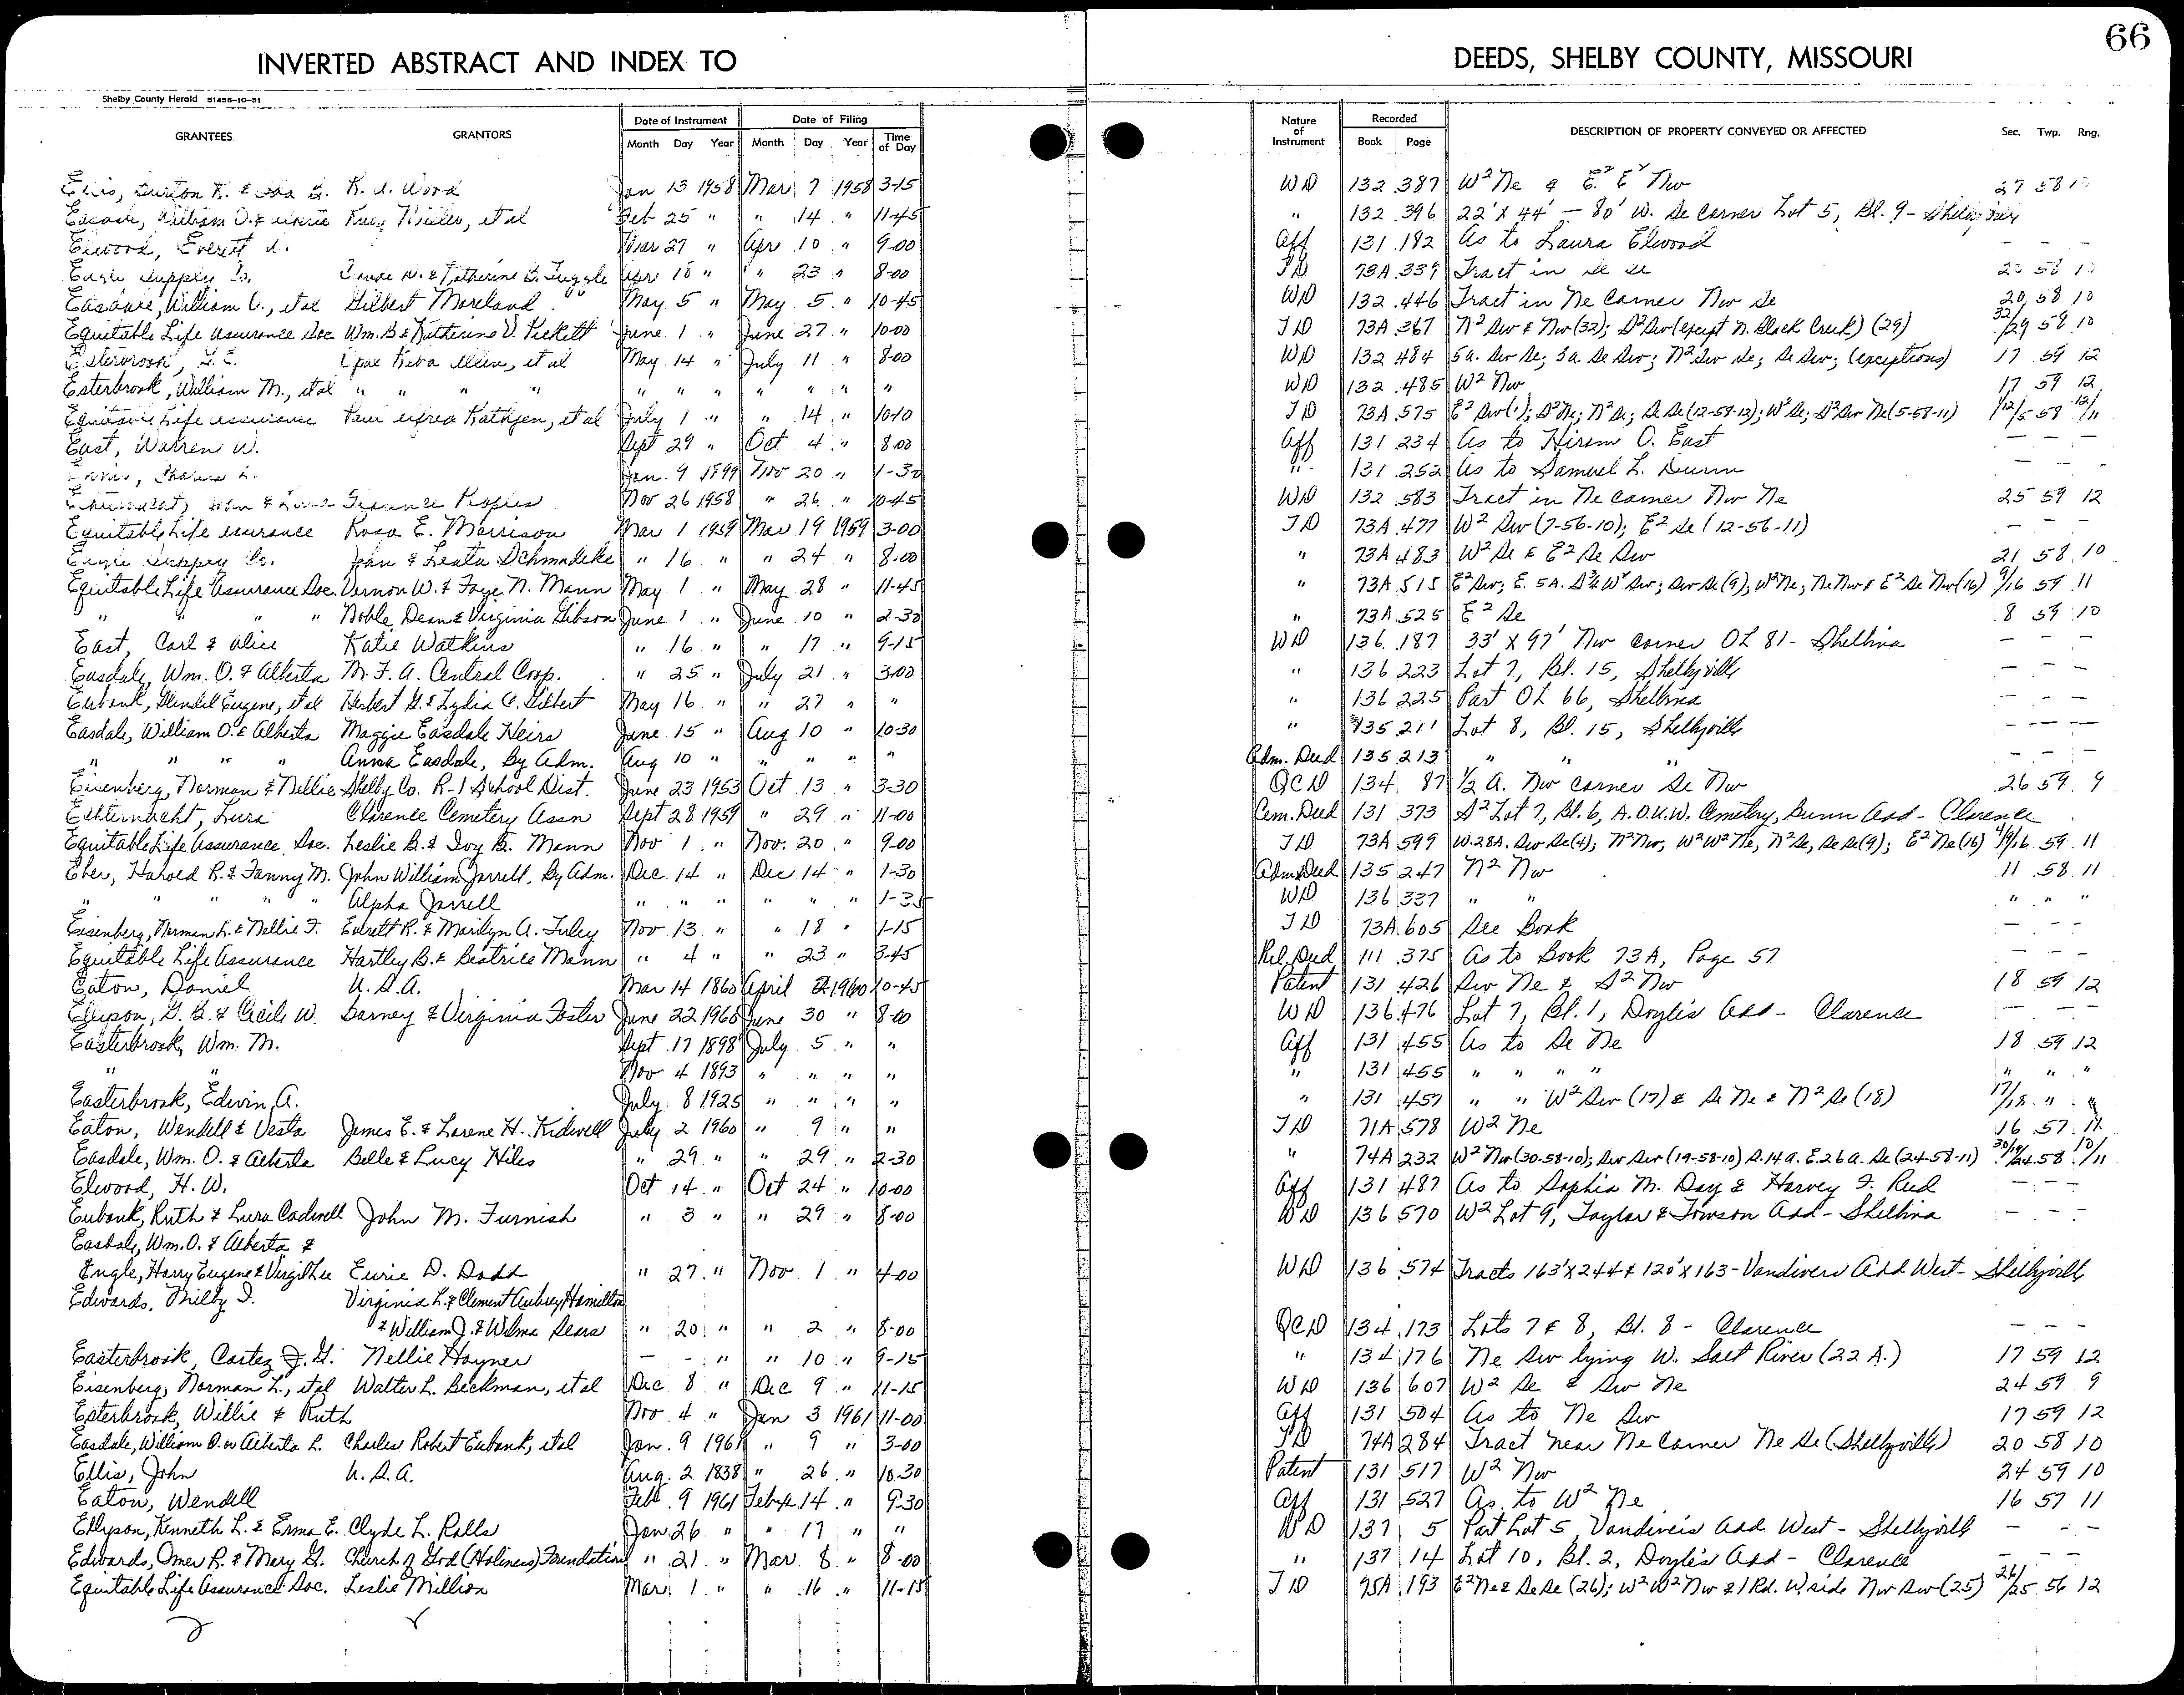 66
INVERTED ABSTRACT AND INDEX TO DEEDS, SHELBY COUNTY, MISSOURI
Shelby County Herald 51458-10-51
GRANTEES GRANTORS Date of Instrument Date of Filing Nature of Instrument Recorded DESCRIPTION OF PROPERTY CONVEYED OR AFFECTED Sec. Twp. Rng.
Month Day Year Month Day Year Time of Day Book Page
Burton K. & K. A. Wood Jan 13 1958 Mar 7 1958 3-15 WD 132 387 W² Ne & E² E² Nw 27 58
William O. & et al Feb 25 " " 14 " 11-45 " 132 396 22' X 44' - 80' W. Se Corner Lot 5, Bl. 9 - Shelbyville
Elwood, Everett Mar 27 " Apr 10 " 9-00 Aff 131 182 As to Laura Elwood - - -
Eagle Supply Co. & Katherine B. Tuggle Apr 18 " " 23 " 8-00 TD 73A 339 Tract in Se 58 10
Easdale, William O., et al Gilbert Moreland May 5 " May 5 " 10-45 WD 132 446 Tract in Ne Corner Nw Se 20 58 10
Equitable Life Assurance Soc. Wm. B & Katherine V. Pickett June 1 " June 27 " 10-00 TD 73A 367 N² Sw & Nw (32); S² Sw (except N. Black Creek) (29) 32/29 58 10
Esterbrook, et al May 14 " July 11 " 8-00 WD 132 484 5a. Sw Se; 3a. Se Sw; N² Sw Se; Se Sw; (exceptions) 17 59 12
Esterbrook, William M., et al " " " " " " " " " " WD 132 485 W² Nw 17 59 12
Equitable Life Assurance Paul Alfred Rathjen, et al July 1 " " 14 " 10-10 TD 73A 575 E² Sw (1); S² Ne; N² Se; Se Se (12-58-12); W² Se; S² Sw Ne (5-58-11) 1/12/5 58 12/11
East, Warren W. Sept 29 " Oct 4 " 8-00 Aff 131 234 As to Hiram O. East - - -
Jan. 9 1899 Nov 20 " 1-30 " 131 252 As to Samuel L. Dunn - - -
Echternacht, John & Lura Florence Peoples Nov 26 1958 " 26 " 10-45 WD 132 583 Tract in Ne Corner Nw Ne 25 59 12
Equitable Life Assurance Rosa E. Morrison Mar 1 1959 Mar 19 1959 3-00 TD 73A 477 W² Sw (7-56-10); E² Se (12-56-11) - - -
Eagle Supply Co. John & Leata Schmideke " 16 " " 24 " 8-00 " 73A 483 W² Se & E² Se Sw 21 58 10
Equitable Life Assurance Soc. Vernon W. & Faye N. Mann May 1 " May 28 " 11-45 " 73A 515 E² Sw; E. 5A. S¾ W² Sw; Sw Se (9); W² Ne; Ne Nw & E² Se Nw (16) 9/16 59 11
" " " " Noble Dean & Virginia Gibson June 1 " June 10 " 2-30 " 73A 525 E² Se 8 59 10
East, Carl & Alice Katie Watkins " 16 " " 17 " 9-15 WD 136 187 33' X 97' Nw corner OL 81 - Shelbina - - -
Easdale, Wm. O. & Alberta M. F. A. Central Coop. " 25 " July 21 " 3-00 " 136 223 Lot 7, Bl. 15, Shelbyville - - -
Eubank, Glendel Eugene, et al Herbert G. & Lydia C. Gilbert May 16 " " 27 " " " 136 225 Part OL 66, Shelbina - - -
Easdale, William O. & Alberta Maggie Easdale Heirs June 15 " Aug 10 " 10-30 " 135 211 Lot 8, Bl. 15, Shelbyville - - -
" " " " Anna Easdale, By Adm. Aug 10 " " " " " Adm. Deed 135 213 " " - - -
Eisenberg, Norman & Nellie Shelby Co. R-1 School Dist. June 23 1953 Oct. 13 " 3-30 QCD 134 87 ½ A. Nw corner Se Nw 26 59 9
Echternacht, Lura Clarence Cemetery Assn Sept 28 1959 " 29 " 11-00 Cem. Deed 131 373 S² Lot 7, Bl. 6, A.O.U.W. Cemetery, Dunn Add - Clarence
Equitable Life Assurance Soc. Leslie B. & Ivy B. Mann Nov 1 " Nov. 20 " 9-00 TD 73A 599 W. 28A. Sw Se (4); N² Nw, W² W² Ne, N² Se, Se Se (9); E² Ne (16) 4/9/16 59 11
Eber, Harold R. & Fanny M. John William Jarrell, By Adm. Dec. 14 " Dec 14 " 1-30 Adm Deed 135 247 N² Nw 11 58 11
" " " " " Alpha Jarrell " " " " " " 1-35 WD 136 337 " " " " "
Eisenberg, Norman L. & Nellie F. Everett R. & Marilyn A. Tuley Nov 13 " " 18 " 1-15 TD 73A 605 See Book - - -
Equitable Life Assurance Hartley B. & Beatrice Mann " 4 " " 23 " 3-45 Rel. Deed 111 375 As to Book 73A, Page 57 - - -
Eaton, Daniel U.S.A. Mar 14 1860 April 2 1960 10-45 Patent 131 426 Sw Ne & S² Nw 18 59 12
Ellyson, G. B. & Cecile W. Barney & Virginia Foster June 22 1960 June 30 " 8-00 WD 136 476 Lot 7, Bl. 1, Doyle's Add - Clarence - - -
Easterbrook, Wm. M. Sept 17 1898 July 5 " " Aff 131 455 As to Se Ne 18 59 12
" " Nov 4 1893 " " " " " 131 455 " " " " " " "
Easterbrook, Edwin A. July 8 1925 " " " " " 131 457 " " W² Sw (17) & Se Ne & N² Se (18) 17/18 " "
Eaton, Wendell & Vesta James E. & Lorene H. Kidwell July 2 1960 " 9 " " TD 71A 578 W² Ne 16 57 11
Easdale, Wm. O. & Alberta Belle & Lucy Hiles " 29 " " 29 " 2-30 " 74A 232 W² Nw (30-58-10); Sw Sw (19-58-10) S. 14 a. E. 26 a. Se (24-58-11) 30/19/24 58 10/11
Elwood, H. W. Oct 14 " Oct 24 " 10-00 Aff 131 487 As to Sophia M. Day & Harvey F. Reid - - -
Eubank, Ruth & Lura Cadwell John M. Furnish " 3 " " 29 " 8-00 WD 136 570 W² Lot 9, Taylor & Towson Add - Shelbina - - -
Easdale, Wm. O. & Alberta &
Engle, Harry Eugene & Virgil Lee Eurie D. Dodd " 27 " Nov. 1 " 4-00 WD 136 574 Tracts 163' X 244 & 120' X 163 - Vandivers Add West - Shelbyville
Edwards, Milby I. Virginia L. & Clement Aubrey Hamilton
& William J. & Wilma Sears " 20 " " 2 " 8-00 QCD 134 173 Lots 7 & 8, Bl. 8 - Clarence - - -
Easterbrook, Cortez J. G. Nellie Hayner - - " " 10 " 9-15 " 134 176 Ne Sw lying W. Salt River (22 A.) 17 59 12
Eisenberg, Norman L., et al Walter L. Beckman, et al Dec 8 " Dec 9 " 11-15 WD 136 607 W² Se & Sw Ne 24 59 9
Esterbrook, Willie & Ruth Nov. 4 " Jan 3 1961 11-00 Aff 131 504 As to Ne Sw 17 59 12
Easdale, William O. or Alberta L. Charles Robert Eubank, et al Jan. 9 1961 " 9 " 3-00 TD 74A 284 Tract near Ne Corner Ne Se (Shelbyville) 20 58 10
Ellis, John U.S.A. Aug. 2 1838 " 26 " 10-30 Patent 131 517 W² Nw 24 59 10
Eaton, Wendell Feb. 9 1961 Feb 14 " 9-30 Aff 131 527 As to W² Ne 16 57 11
Ellyson, Kenneth L. & Erma E. Clyde L. Ralls Jan 26 " " 17 " " WD 137 5 Part Lot 5, Vandiver's Add West - Shelbyville - - -
Edwards, Omer R. & Mary G. Church of God (Holiness) Foundation " 21 " Mar. 8 " 8-00 " 137 14 Lot 10, Bl. 2, Doyle's Add - Clarence - - -
Equitable Life Assurance Soc. Leslie Million Mar. 1 " " 16 " 11-15 TD 75A 193 E² Ne & Se Se (26); W² W² Nw & 1 Rd. W. side Nw Sw (25) 26/25 56 12